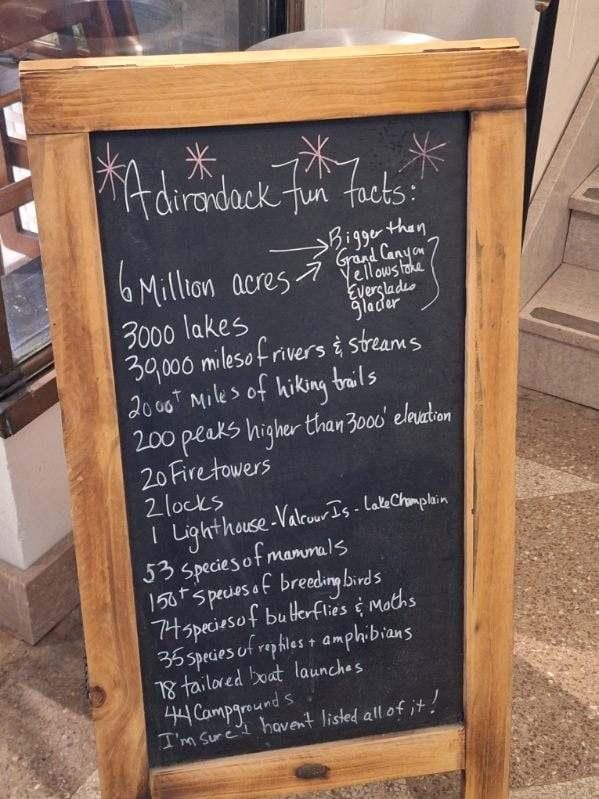 Adirondack Fun Facts:
6 Million acres → Bigger than
Grand Canyon
Yellowstone
Everglades
glacier
3000 lakes
30,000 miles of rivers & streams
2000+ Miles of hiking trails
200 peaks higher than 3000' elevation
20 Firetowers
2 locks
1 Lighthouse - Valcour Is - Lake Champlain
53 species of mammals
150+ species of breeding birds
74 species of butterflies & Moths
35 species of reptiles + amphibians
78 tailored boat launches
44 Campgrounds
I'm sure I haven't listed all of it!